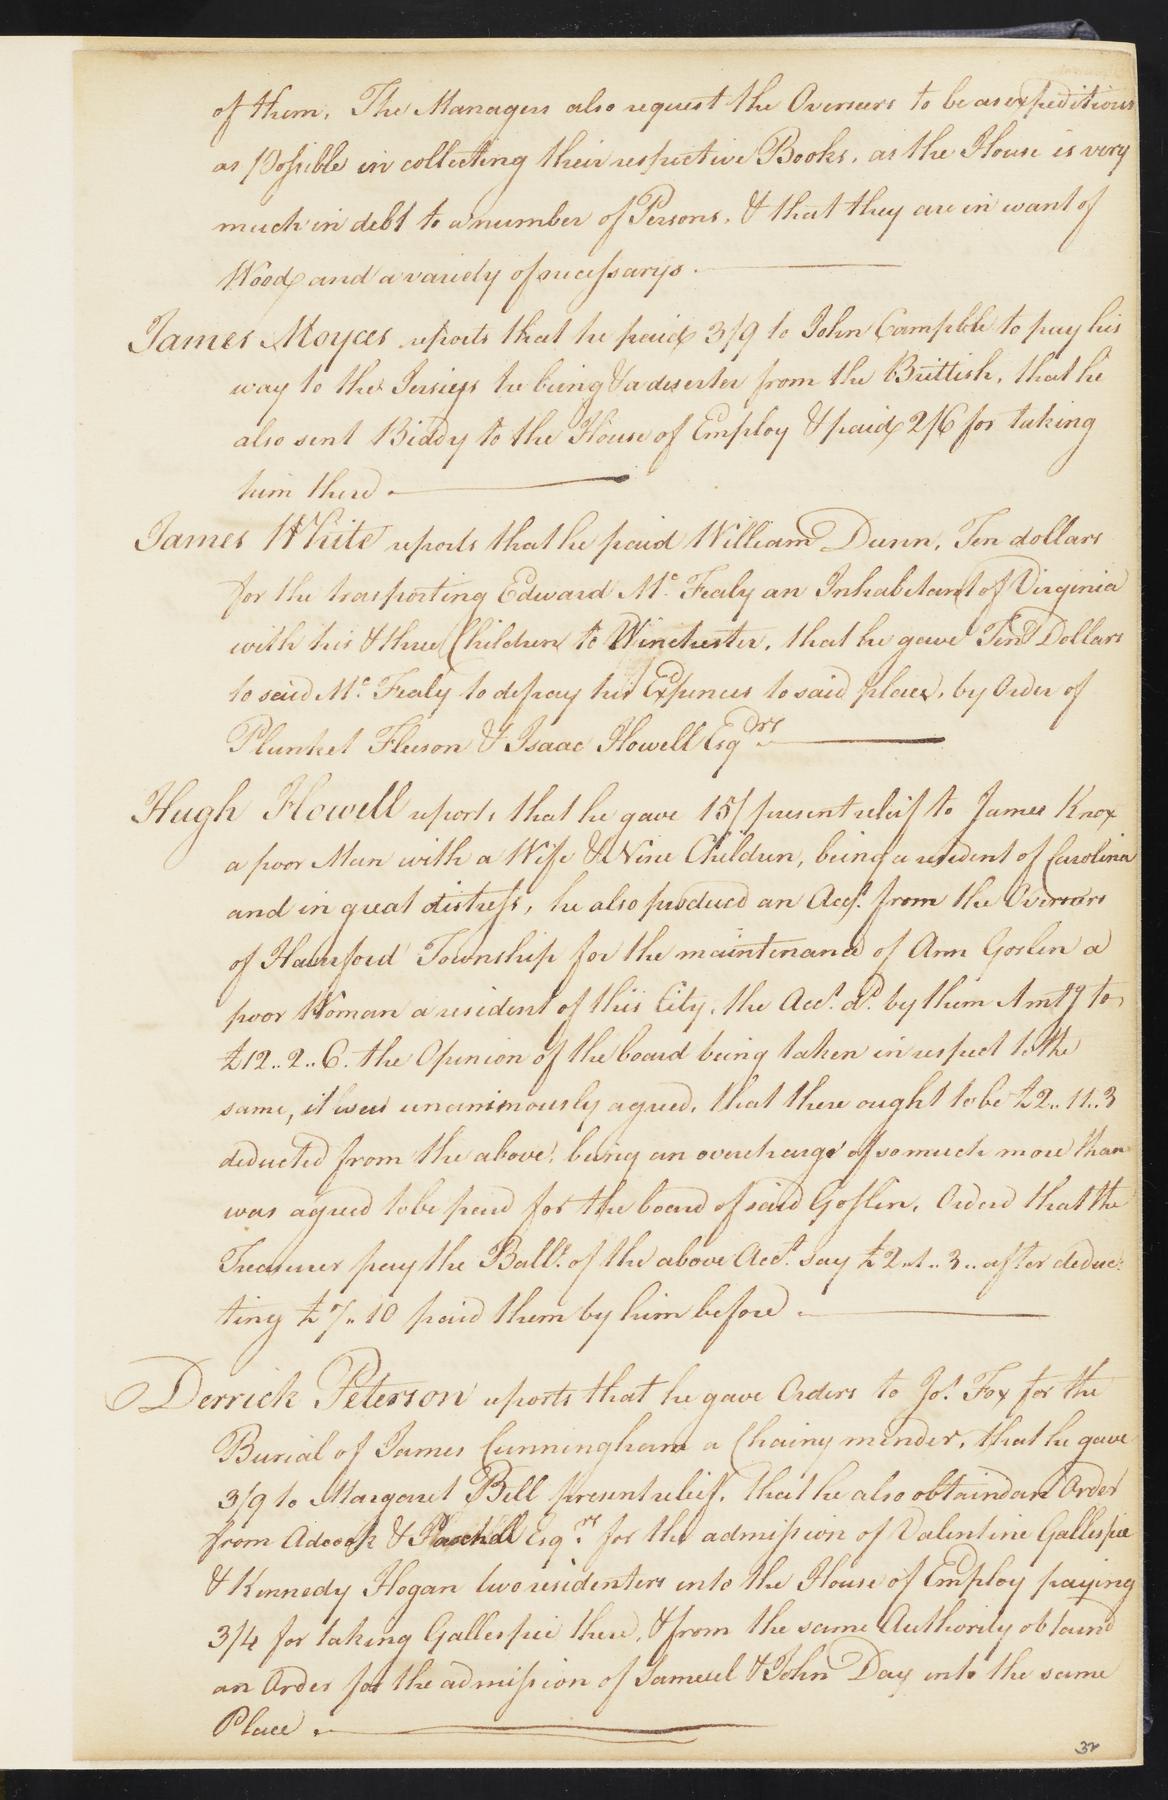 of them, The Managers also request the Overseers to be as expeditious
as Possible in collecting their respective Books, as the House is very
much in debt to a number of Persons, & that they are in want of
Wood and a variety of necessarys.
James Moyces reports that he paid 3/9 to John Campble to pay his
way to the Jersieys he being a deserter from the Brittish, that he
also sent Biddy to the House of Employ & paid 2/6 for taking
him there.
James White reports that he paid William Dunn, Ten dollars
for the trasporting Edward Mc. Fealy an Inhabitant of Virginia
with his & three Children to Winchester, that he gave Ten Dollars
to said Mc. Fealy to defray his Expences to said place, by Order of
Plunket Fleeson & Isaac Howell Esqrs.
Hugh Howell reports that he gave 15/ present relief to James Knox
a poor Man with a Wife & Nine Children, being a resident of Carolina
and in great distress, he also produced an Acct. from the Overseers
of Township for the maintenance of Ann Goslen a
poor Woman a resident of this City, the Acct. dd. by them Amtg to
£12..2..6. the Openion of the board being taken in respect to the
same, it was unanimously agreed, that there ought to be £2..11..3
deducted from the above, being an overcharge of so much more than
was agreed to be paid for the board of said Goslin, Orderd that the
Treasurer pay the Balle. of the above Acct. say £2..1..3.. after deduc:
ting £7..10 paid them by him before.
Derrick Peterson reports that he gave Orders to Jos. Fox for the
Burial of James Cunningham a Chainy mender, that he gave
3/9 to Margaret Bell present relief, that he also obtaind an Order
from Adcock & Esqrs. for the admission of Valentine Gallespie
& Kennedy Hogan two residenters into the House of Employ paying
3/4 for taking Gallespie there, & from the same Authority obtaind
an Order for the admission of Samuel & John Day into the same
Place.
32